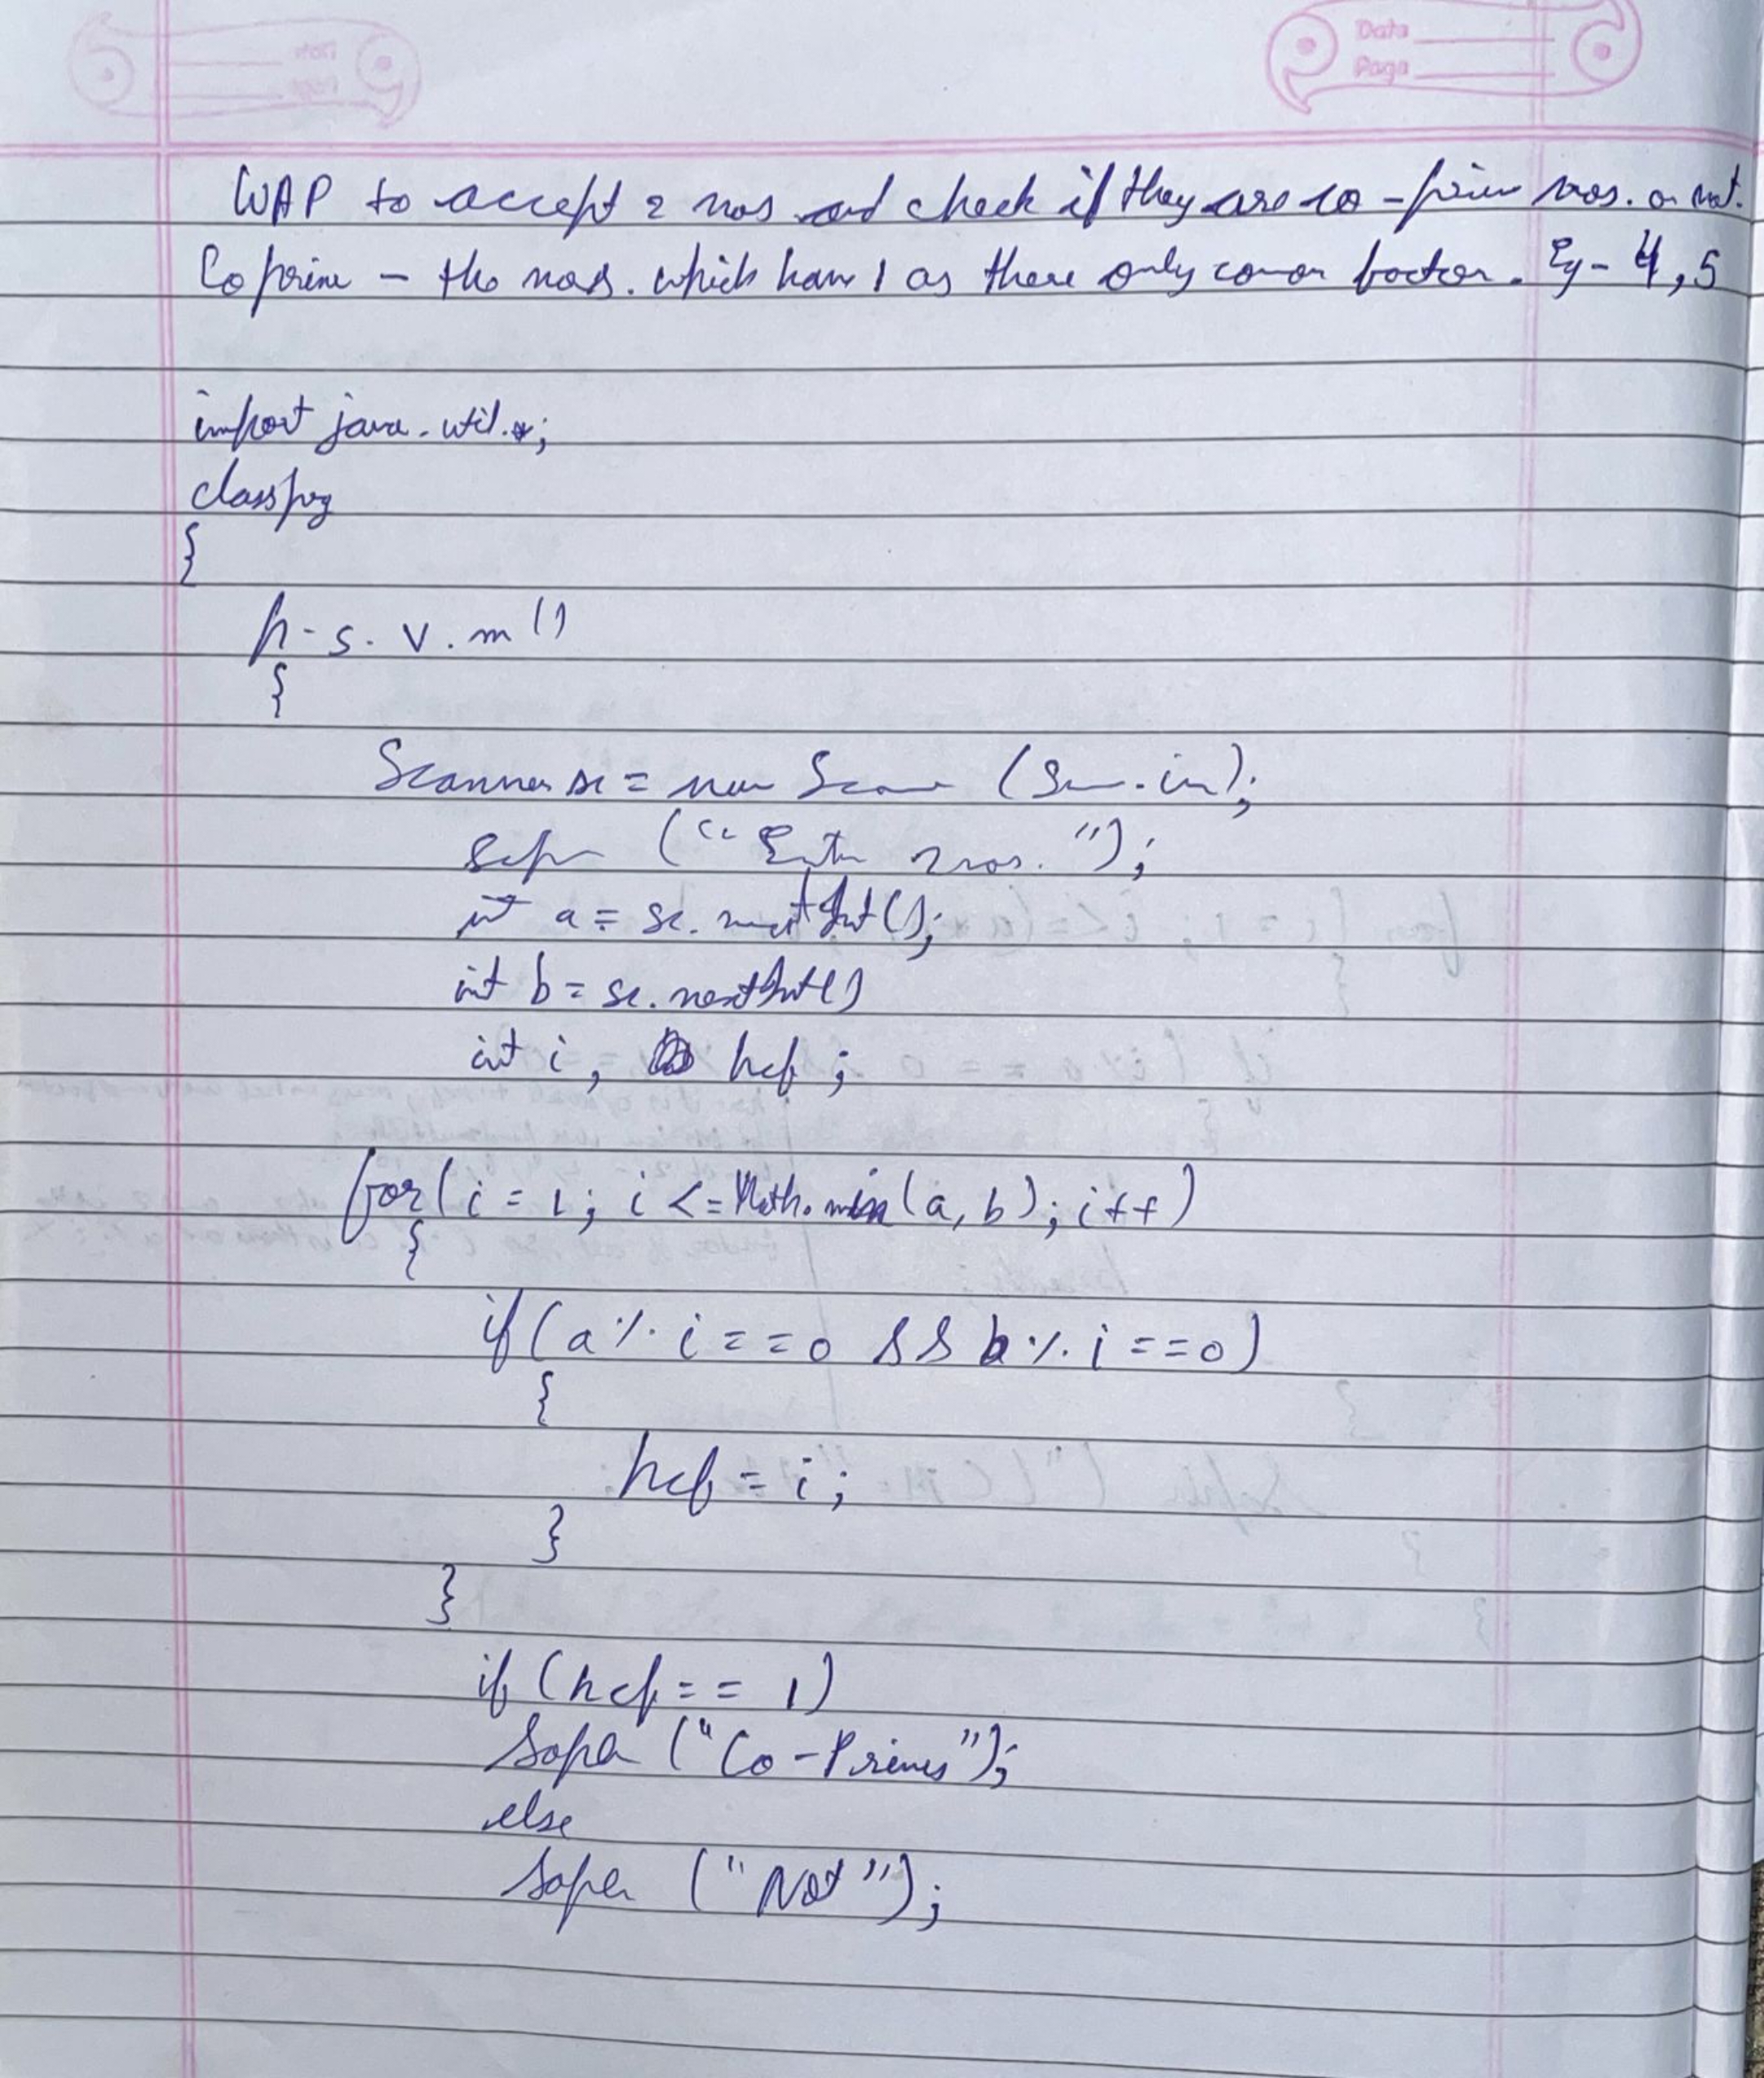 Date
Page
WAP to accept 2 nos and check if they are co-prime nos. or not.
Coprime - the nos. which have 1 as there only common factor. Eg- 4, 5
import java.util.*;
class prg
{
p.s.v.m()
{
Scanner sc = new Scanner (System.in);
Sopln ("Enter 2 nos.");
int a = sc.nextInt();
int b = sc.nextInt()
int i, hcf;
for(i = 1; i <= Math.min(a, b); i++)
{
if(a % i == 0 && b % i == 0)
{
hcf = i;
}
}
if (hcf == 1)
Sopln ("Co-Primes");
else
Sopln ("Not");